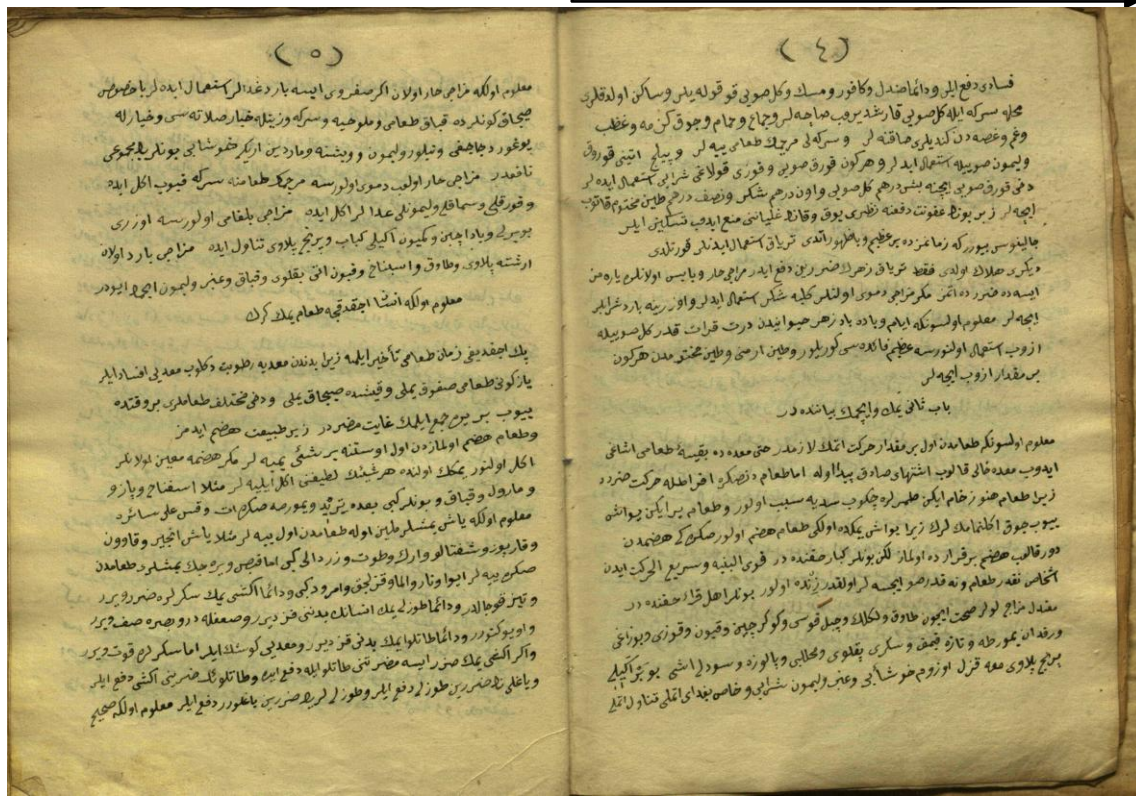 (٤)
فسادی دفع ایلر ودائما صندل وکافور ومسك وکل صویی قوقوله یلر وساکن اولدقلری
محله سرکه ایله کل صویی قارشدیروب صاچه لر وجماع وحمام وچوق کزمه وغضب
وغم وغصه دن کندیلری صاقنه لر و سرکه لی مرجمك طعامی ییه لر و پیلیج اتینی قوروق
ولیمون صوییله استعمال ایده لر و هر کون قوروق صویی وقوزی قولاغی شرابی استعمال ایده لر
دخی قوروق صویی ایچنه بش درهم کل صویی واون درهم شکر ونصف درهم طین مختوم قاتوب
ایچه لر زیرا بونك عفونت دفعنه نظیری یوق وقانك غلیانی منع ایدوب تسکین ایلر
جالینوس بیوررکه زمانمزده بر عظیم وبا ظهور اتدی تریاق استعمال ایدنلر قورتلدی
دیکری هلاك اولدی فقط تریاق زهرك ضررین دفع ایدر مزاجی حار ویابس اولانلره یاره من
ایسه ده ضررده اتمز مکر مزاجی دموی اولنلر کلیه شکر استعمال ایده لر واوزرینه بارد شرابلر
ایچه لر معلوم اولسونکه ایام وباده باد زهر حیوانیدن درت قرات قدر کل صوییله
ازوب استعمال اولنورسه عظیم فائده سی کوریلور وطین ارمنی وطین مختومدن هر کون
بر مقدار ازوب ایچه لر
باب ثانی یمك وایچمك بیاننده در
معلوم اولسونکه طعامدن اول بر مقدار حرکت اتمك لازمدر حتی معده ده بقیهٔ طعامی اشاغی
ایدوب معده خالی قالوب اشتهای صادق پیدا اوله اما طعامدنصکره افراطله حرکت ضرردر
زیرا طعام هنوز خام ایکن طمرلره چکلوب سدیه سبب اولور وطعام یرایکن یواش
ییوب چوق اکلتمامك کرك زیرا یواش یمکده اولکی طعام هضم اولور صکره کی هضمدن
دور قالوب هضم بر قرارده اولماز لکن بونلر کبار حقنده در قوی البنیه وسریع الحرکت ایدن
اشخاص نقدر طعام ونه قدر صو ایچسه لر اولقدر زنده اولور بونلر اهل قراء حقنده در
معتدل مزاج لولر صحت ایچون طاوق وککلك وچیل قوشی وکوکرجین وقیون وقوزی وبوزاغی
ورفدان یمورطه وتازه قیمق وسکری بقلوی ومحلبی وپالوزه وسودلی اشی
برنج پلاوی معه قزل اوزوم خوشابی وعنبر ولیمون شرابی وخاص بغدای اتمکی تناول اتملی
(٥)
معلوم اولکه مزاجی حار اولان اکر صفروی ایسه بارد غدالر استعمال ایده لر باخصوص
صیجاق کونلرده قباق طعامی وملوخیه وسرکه وزیتله خیار صلاته سی وخیارله
یوغورد جاجغی ونیلوفر ولیمون وویشنه وماردین اریکی خوشابی بونلرك مجموعی
نافعدر مزاجی حار اولوب دموی اولورسه مرجمك طعامنه سرکه قیوب اکل ایده
وقوروقلی وسماقلی ولیمونلی غدالر اکل ایده مزاجی بلغامی اولورسه اوزری
بوبرلی ودارچین وکمیون اکیلی کباب وبرنج پلاوی تناول ایده مزاجی بارد اولان
ارشته پلاوی وطاوق واسپناخ وقیون اتی بقلوی وقباق وعنبر ولیمون ایچمك ایودر
معلوم اولکه انسان اجقدقجه طعام یمك کرك
پك اجقدیغی زمان طعامی تأخیر ایلمه زیرا بدندن معدیه رطوبت دکلوب معدیی افساد ایلر
یاز کونی طعامی صغوق یملی وقیشده صیجاق یملی ودخی مختلف طعاملری بر وقتده
ییوب بر یره جمع ایلمك غایت مضردر زیرا طبیعت هضم ایدمز
وطعام هضم اولمازدن اول اوستنه بر شئی یمیه لر مکر هضمه معین اولانلر
اکل اولنور یمك اولنده هر شیئك لطیفنی اکل ایلیه لر مثلا اسفناخ وپازو
ومارول وقباق وبونلر کبی بعده ترید ویمورطه صکره ات وقس علی سائره
معلوم اولکه یاش یمشلر ملین اوله طعامدن اول ییه لر مثلا یاش انجیر وقاوون
وقارپوز وشفتالو وارك وطوت وزردالی کبی اما قابض ویره جك یمشلر طعامدن
صکره ییه لر ایوا ونار والما وقزلجق وامرود کبی ودائما اکشی یمك سکرلره ضرر ویرر
وتیز قوجالدر ودائما طوزلی یمك انسانك بدننی قزدیرر وضعفله در وبصره ضعف ویرر
واویو کتورر ودائما طاتلو یمك بدنی قزدیرر ومعدیی کوشك ایلر اما سکرلره قوت ویرر
واکر اکشی یمك ضرر ایسه مضرتنی طاتلو ایله دفع ایده وطاتلونك ضررینی اکشی دفع ایلر
ویاغلی نك ضررین طوزلی دفع ایلر وطوزلی لرك ضررین یاغلولر دفع ایلر معلوم اولکه صحیح